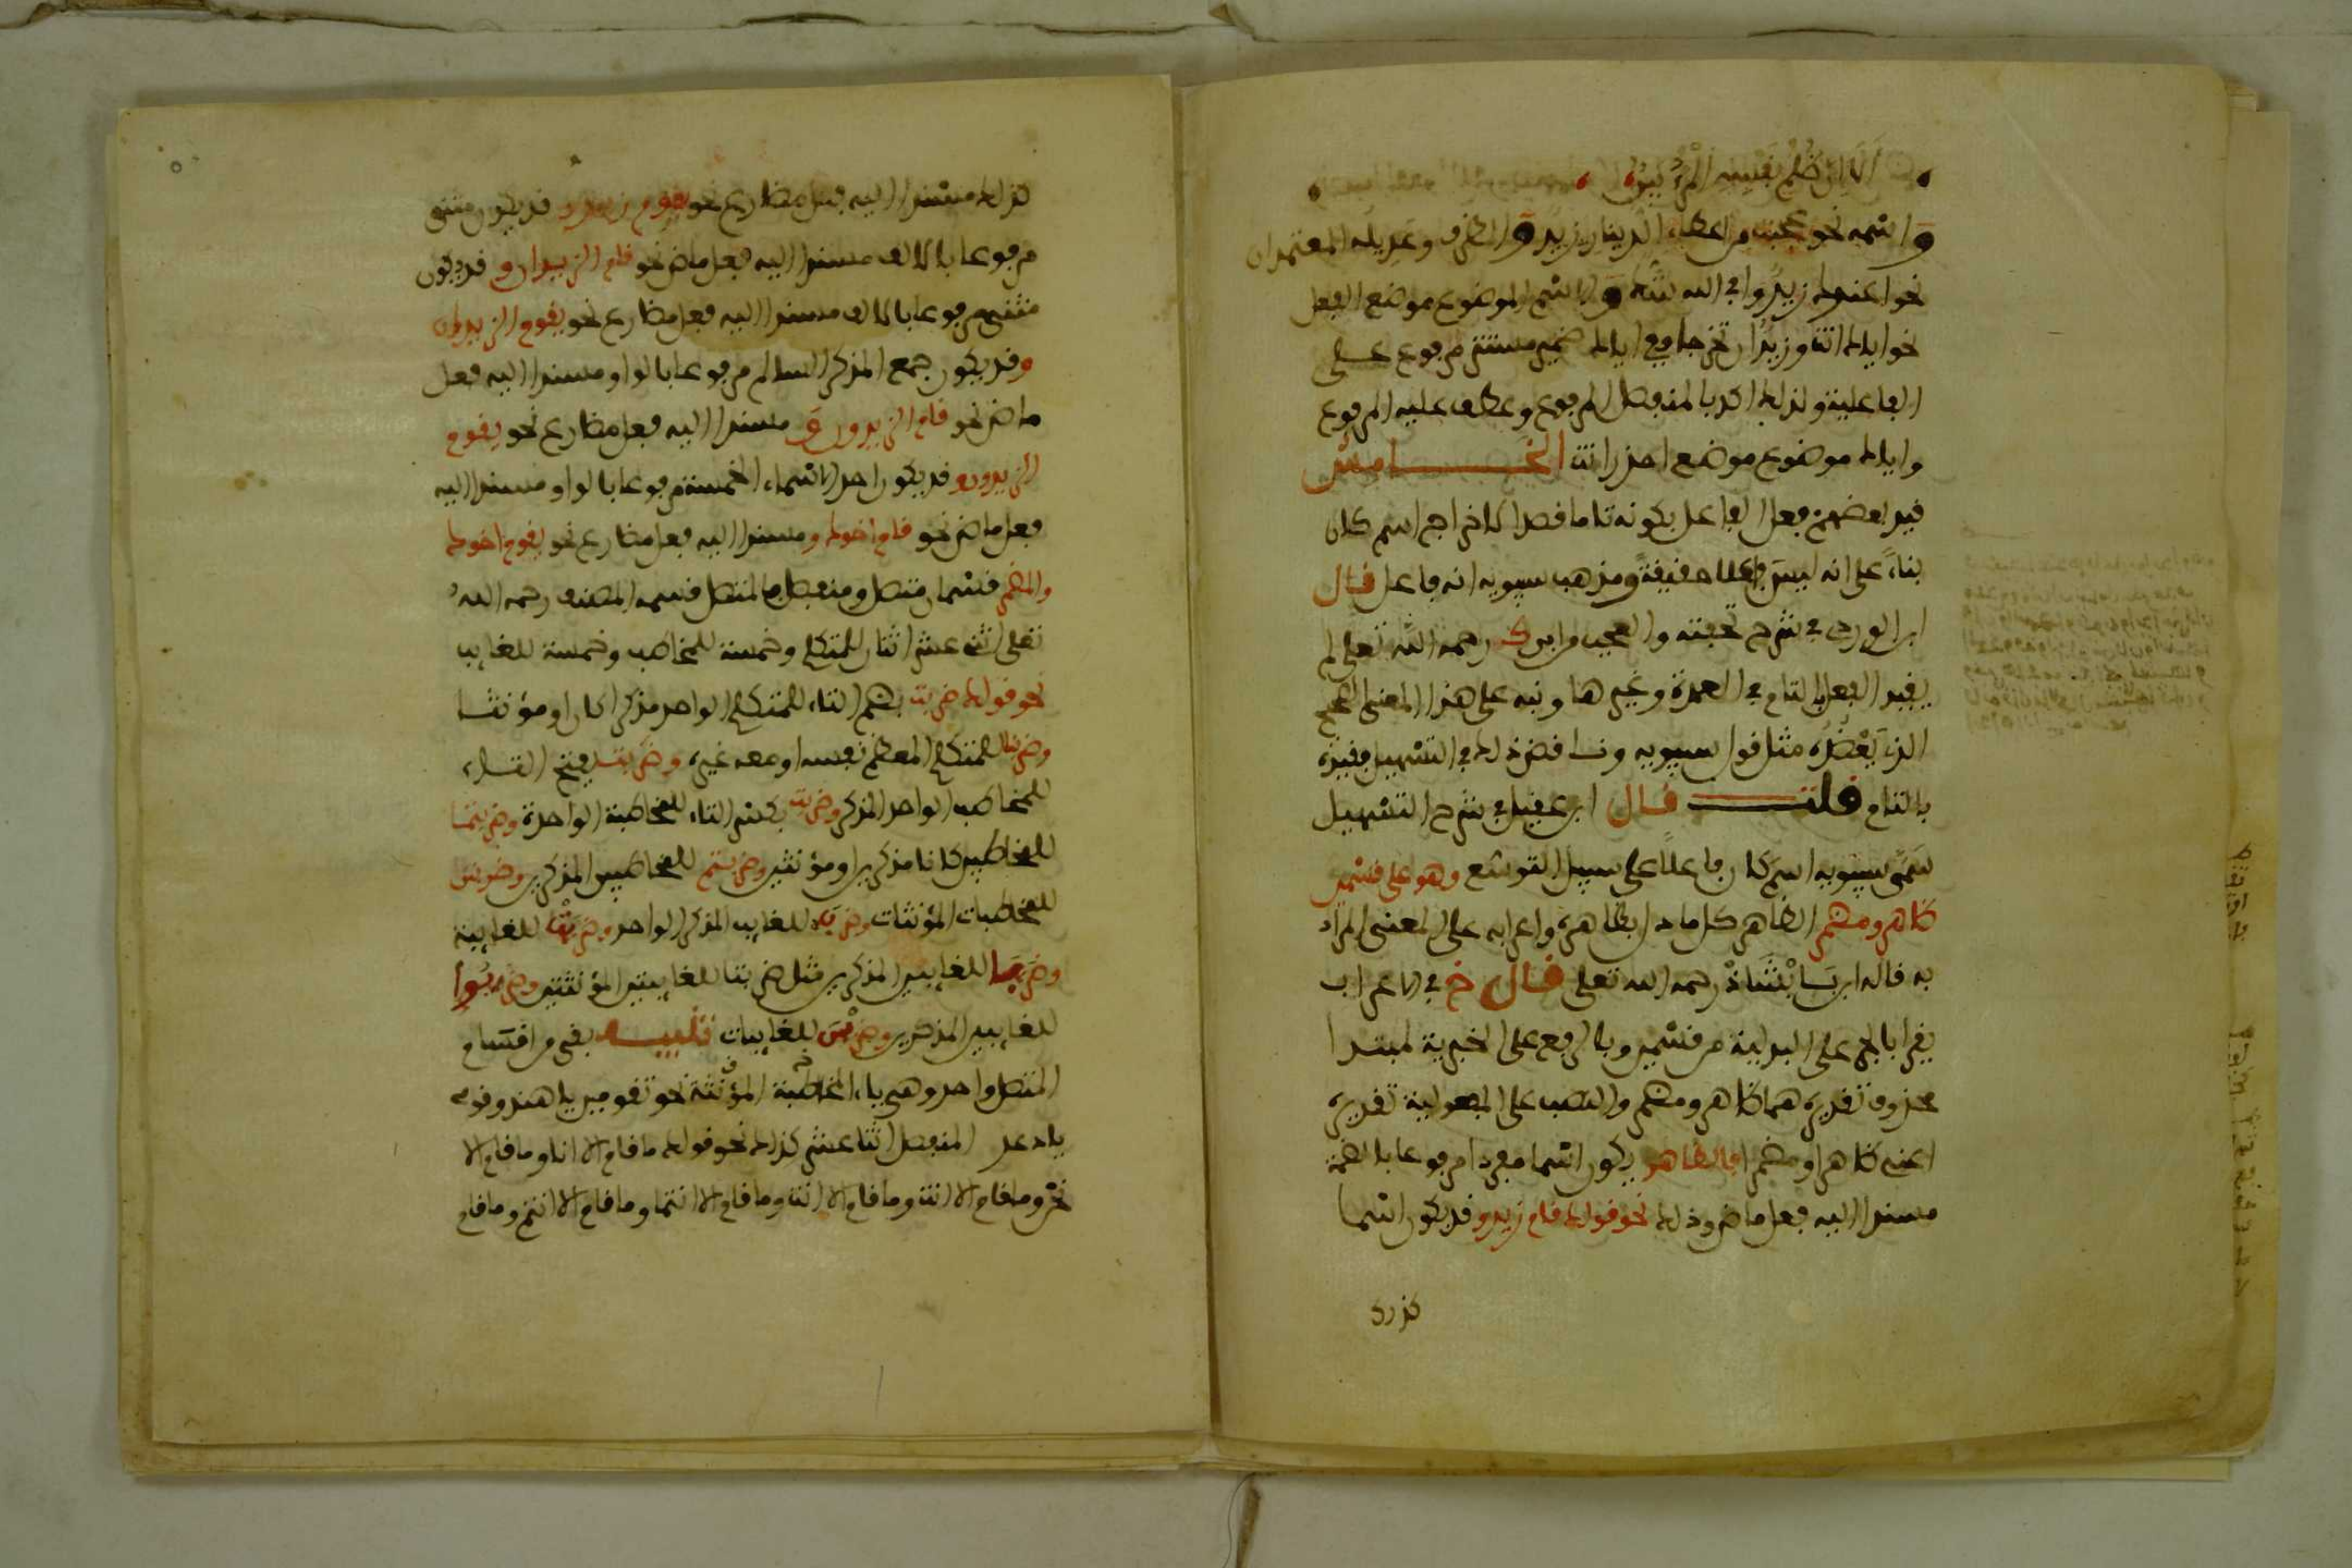 ألا إن ظلم نفسه المرء بين
واسمه نحو عجبت من اعطاء الدينار زيد والظرف وعديله المعتمدان
نحو اعندك زيد وافي الله شك والاسم الموضوع موضع الفعل
نحو اياك انت وزيد ان تخرجا ففي اياك ضمير مستتر مرفوع على
الفاعلية ولذلك اكد بالمنفصل المرفوع وعطف عليه المرفوع
واياك موضوع موضع احذر انت الخامس
قيد بعضهم فعل الفاعل بكونه تاما قصدا لاخراج اسم كان
بناء على انه ليس فاعلا حقيقة ومذهب سيبويه انه فاعل قال
ابن الوردي في شرح تحفته والعجب من ابن ك رحمه الله تعلى لم
يقيد الفعل بالتام في العمدة وغيرها ونبه على هذا المعنى الصحيح
الذي يعضده مثل قول سيبويه وناقض ذلك في التسهيل فقيده
بالتام قلت قال ابن عقيل في شرح التسهيل
سمى سيبويه اسم كان فاعلا على سبيل التوسع وهو على قسمين
ظاهر ومضمر الظاهر كل ما دل بظاهره واعرابه على المعنى المراد
به قاله ابن بابشاذ رحمه الله تعلى قال خ في الاعراب
يقرا بالجر على البدلية من قسمين وبالرفع على الخبرية لمبتدا
محذوف تقديره هما ظاهر ومضمر والنصب على المفعولية تقديره
اعني ظاهرا ومضمرا فالظاهر يكون اسما مفردا مرفوعا بالضمة
مسندا اليه فعل ماض وذلك نحو قولك قام زيد وقد يكون اسما
كذلك
كذلك مسندا اليه فعل مضارع نحو يقوم زيد وقد يكون مثنى
مرفوعا بالالف مسندا اليه فعل ماض نحو قام الزيدان وقد يكون
مثنى مرفوعا بالالف مسندا اليه فعل مضارع نحو يقوم الزيدان
وقد يكون جمع المذكر السالم مرفوعا بالواو مسندا اليه فعل
ماض نحو قام الزيدون و مسندا اليه فعل مضارع نحو يقوم
الزيدون وقد يكون احد الاسماء الخمسة مرفوعا بالواو مسندا اليه
فعل ماض نحو قام اخوك ومسندا اليه فعل مضارع نحو يقوم اخوك
والمضمر قسمان متصل ومنفصل فالمتصل قسمه المصنف رحمه الله
تعلى اثني عشر اثنان للمتكلم وخمسة للمخاطب وخمسة للغايب
نحو قولك ضربت بضم التاء للمتكلم الواحد مذكرا كان او مؤنثا
وضربنا للمتكلم المعظم نفسه او معه غيره وضربت بفتح التاء
للمخاطب الواحد المذكر وضربت بكسر التاء للمخاطبة الواحدة وضربتما
للمخاطبين كانا مذكرين او مؤنثين وضربتم للمخاطبين المذكرين وضربتن
للمخاطبات المؤنثات وضرب للغايب المذكر الواحد وضربت للغايبة
وضربا للغايبين المذكرين مثل ضربتا للغايبتين المؤنثتين وضربوا
للغايبين المذكرين وضربن للغايبات تنبيه بقي من اقسام
المتصل واحد وهي ياء المخاطبة المؤنثة نحو تقومين يا هند وقومي
يا دعد المنفصل اثنا عشر كذلك نحو قولك ما قام الا انا وما قام الا
نحن وما قام الا انت وما قام الا انت وما قام الا انتما وما قام الا انتم وما قام